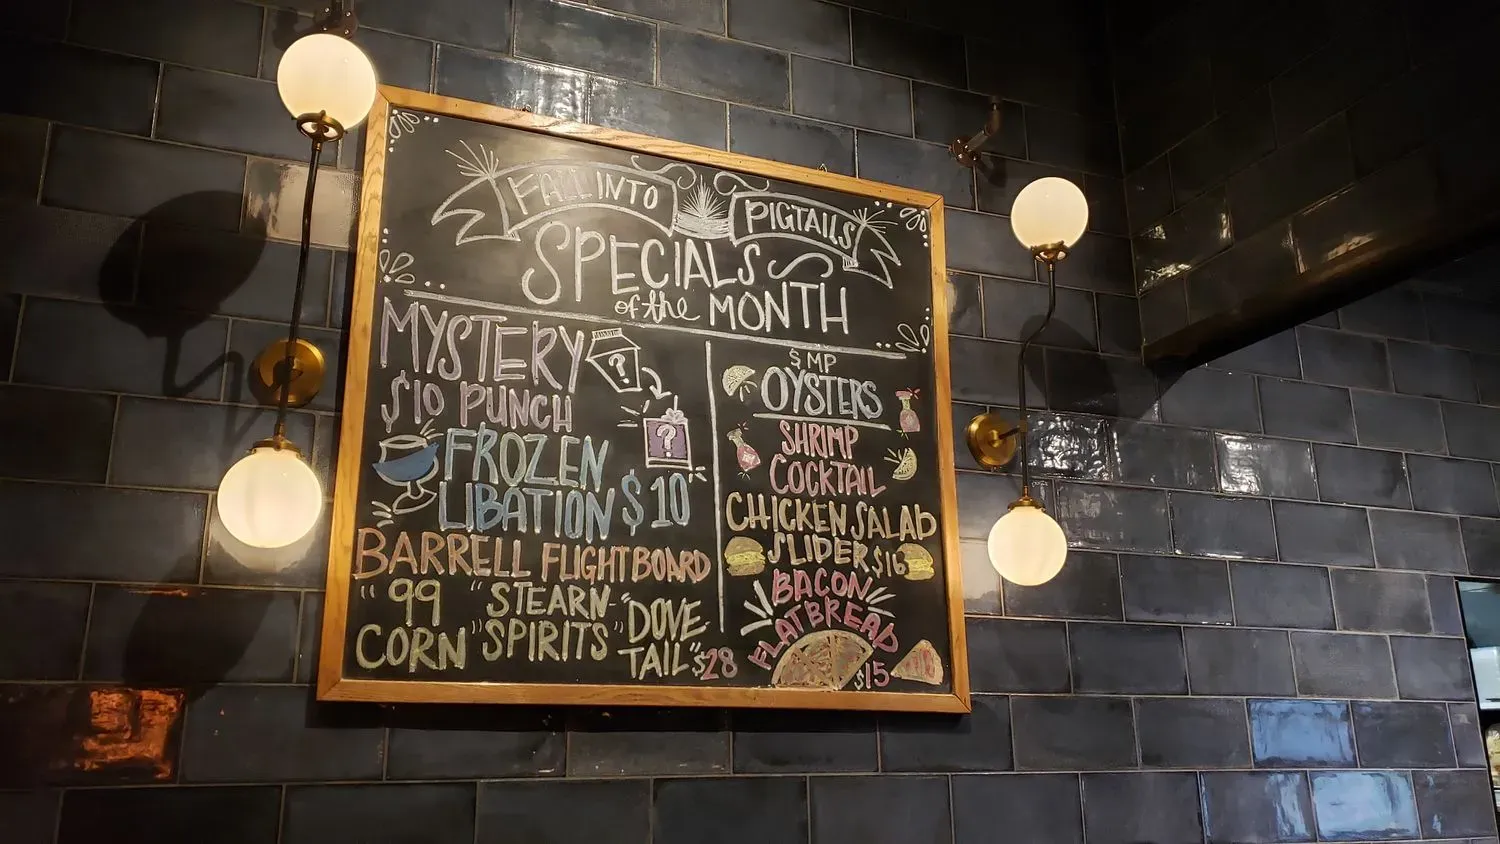 FALL INTO PIGTAILS
SPECIALS
of the MONTH
MYSTERY
$10 PUNCH
?
?
FROZEN
LIBATION $10
BARRELL FLIGHTBOARD
"99 "STEARN "DOVE
CORN" SPIRITS" TAIL" $28
$ MP
OYSTERS
SHRIMP
COCKTAIL
CHICKEN SALAD
SLIDER $16
BACON
FLATBREAD
$15